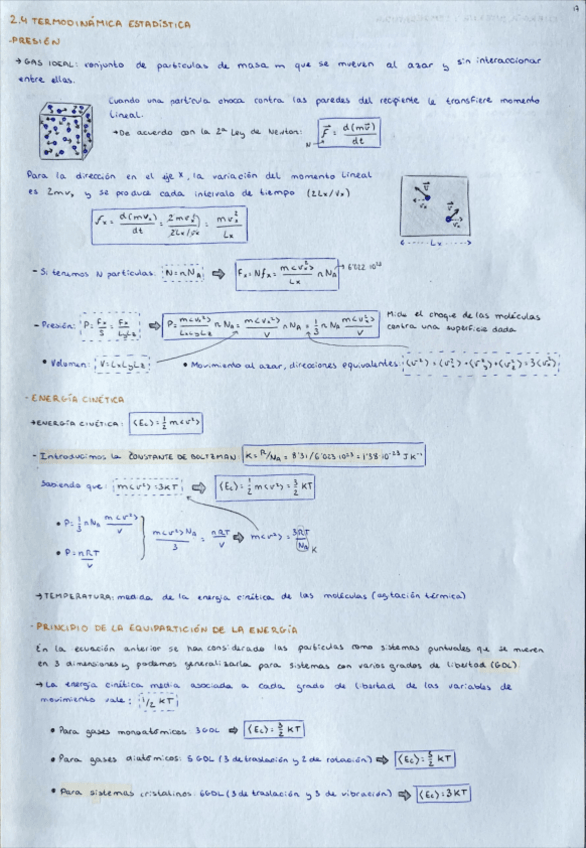 17
2.4 TERMODINÁMICA ESTADÍSTICA
·PRESIÓN
→ GAS IDEAL: conjunto de partículas de masa m que se mueven al azar y sin interaccionar
entre ellas.
Cuando una partícula choca contra las paredes del recipiente le transfiere momento
lineal.
→De acuerdo con la 2ª Ley de Newton: F⃗ = d(mv⃗)/dt
N
Para la dirección en el eje X, la variación del momento lineal
es 2mvₓ y se produce cada intervalo de tiempo (2Lx/vx)
fx = d(mvx)/dt = 2mvx/(2Lx/vx) = mvx²/Lx
v⃗
vx
v⃗
vx
Lx
- Si tenemos N partículas: N=nNA ⇒ Fx=Nfx = m<vx²>/Lx nNA → 6'022·10²³
- Presión: P = Fx/S = Fx/LyLz ⇒ P = m<vx²>/LxLyLz nNA = m<vx²>/V nNA = 1/3 nNA m<v²>/V Mide el choque de las moléculas
contra una superficie dada
• Volumen: V=LxLyLz • Movimiento al azar, direcciones equivalentes: <v²>=<vx²>+<vy²>+<vz²>=3<vx²>
·ENERGÍA CINÉTICA
→ENERGÍA CINÉTICA: <Ec>=1/2 m<v²>
- Introducimos la CONSTANTE DE BOLTZMAN: K=R/NA = 8'31/6'023·10²³=1'38·10⁻²³ JK⁻¹
Sabiendo que: m<v²>=3KT ⇒ <Ec>=1/2 m<v²>=3/2 KT
• P=1/3 nNA m<v²>/V
m<v²>NA/3 = nRT/V ⇒ m<v²>=3RT/NA K
• P=nRT/V
→TEMPERATURA: medida de la energía cinética de las moléculas (agitación térmica)
·PRINCIPIO DE LA EQUIPARTICIÓN DE LA ENERGÍA
En la ecuación anterior se han considerado las partículas como sistemas puntuales que se mueven
en 3 dimensiones y podemos generalizarla para sistemas con varios grados de libertad (GOL).
→La energía cinética media asociada a cada grado de libertad de las variables de
movimiento vale: 1/2 KT
• Para gases monoatómicos: 3GOL ⇒ <Ec>=3/2 KT
• Para gases diatómicos: 5GOL (3 de traslación y 2 de rotación) ⇒ <Ec>=5/2 KT
• Para sistemas cristalinos: 6GOL (3 de traslación y 3 de vibración) ⇒ <Ec>=3KT